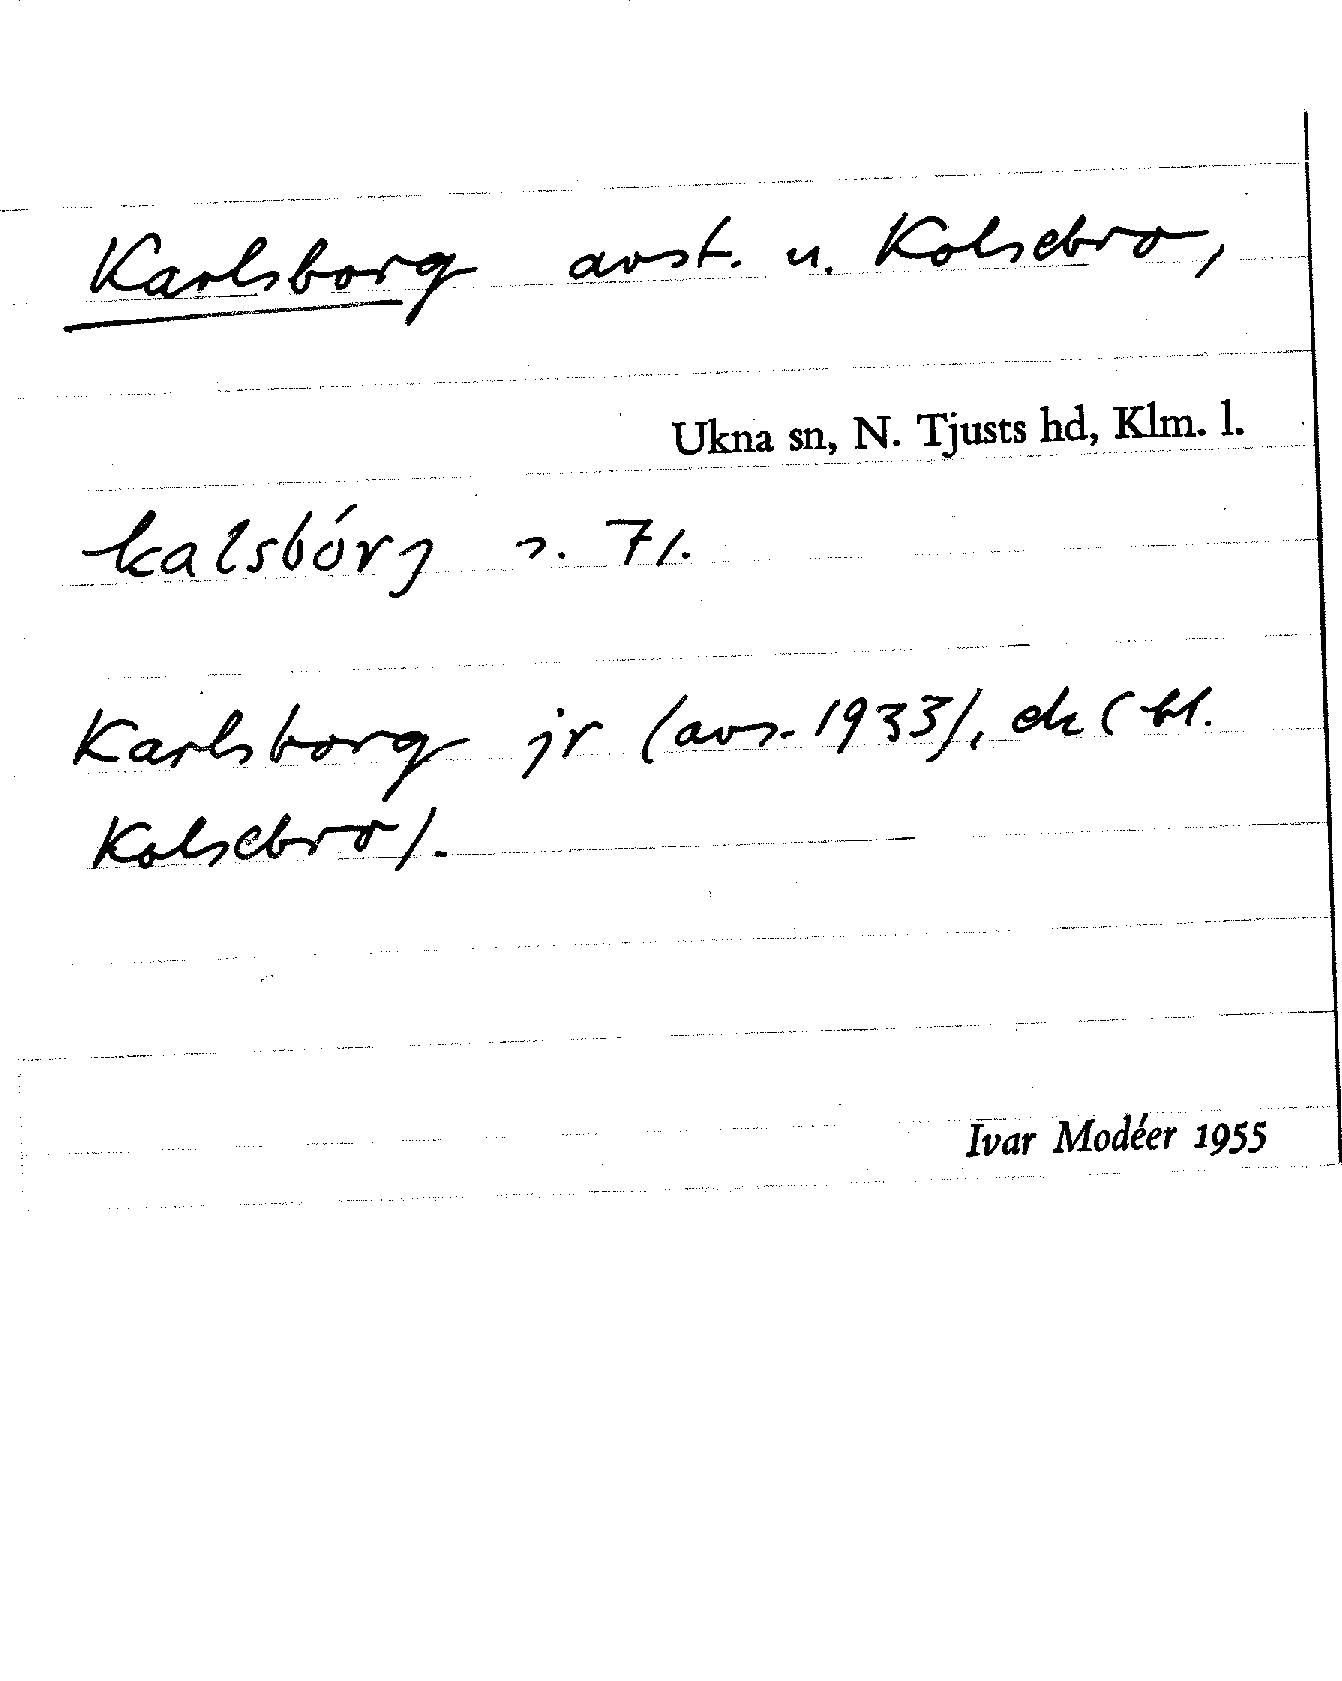 Karlsborg avst. u. Kolsebro,
Ukna sn, N. Tjusts hd, Klm. l.
kalsbórj s. 71.
Karlsborg jr (avs. 1933), ek (bl.
Kolsebro).
Ivar Modéer 1955